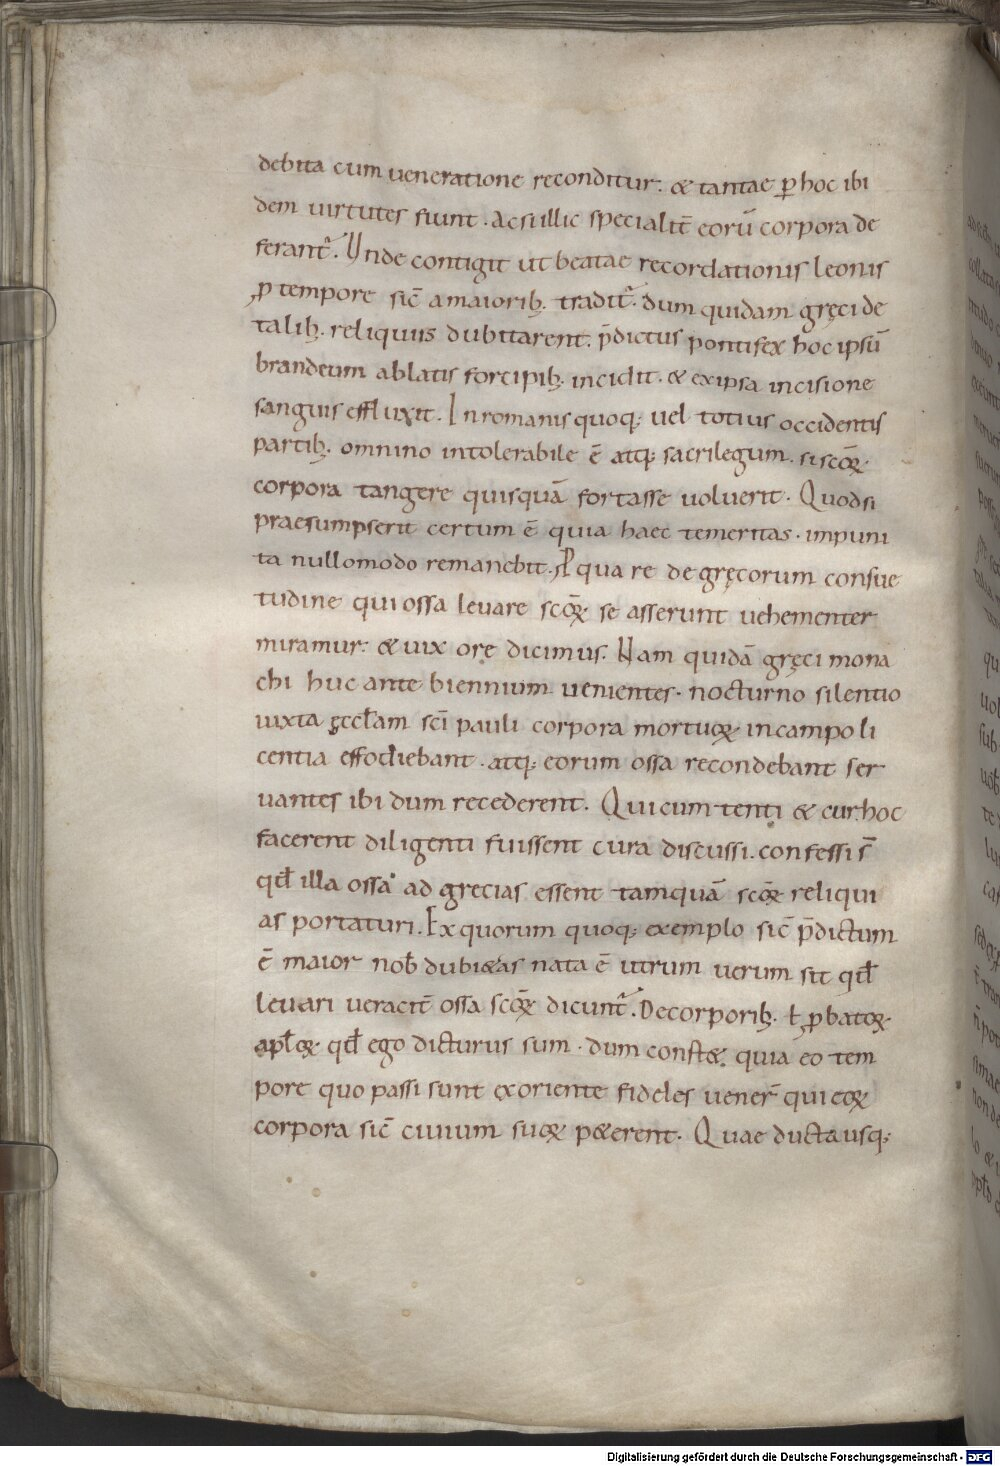 debita cum ueneratione reconditur. & tantae ꝑ hoc ibi
dem uirtutes fiunt. Ac si illic specialit̄ eorū corpora de
ferant̄. Unde contigit ut beatae recordationis leonis
ꝑ tempore sic̄ a maiorib; tradit̄. dum quidam gręci de
talib; reliquiis dubitarent. p̄dictus pontifex hoc ipsū
brandeum ablatis forcipib; incidit. & ex ipsa incisione
sanguis effluxit. In romanis quoq; uel totius occidentis
partib; omnino intolerabile ē atq; sacrilegum. si scōꝝ
corpora tangere quisquā fortasse uoluerit. Quod si
praesumpserit certum ē quia haec temeritas. impuni
ta nullomodo remanebit. A qua re de gręcorum consue
tudine qui ossa leuare scōꝝ se asserunt uehementer
miramur. & uix ore dicimus. Nam quidā gręci mona
chi huc ante biennium uenientes. nocturno silentio
iuxta ęcctam sc̄i pauli corpora mortuoꝝ in campo li
centia effodiebant. atq; eorum ossa recondebant ser
uantes ibi dum recederent. Qui cum tenti & cur hoc
facerent diligenti fuissent cura discussi. confessi s̄
qđ illa ossa ad grecias essent tamquā scōꝝ reliqui
as portaturi. Ex quorum quoq; exemplo sic̄ p̄dictum
ē maior nob̄ dubi&as nata ē utrum uerum sit qđ
leuari ueracit̄ ossa scōꝝ dicunt̄. De corporib; ł ꝑbatoꝝ
apłoꝝ qđ ego dicturus sum. dum const&. quia eo tem
pore quo passi sunt ex oriente fideles uener̄ qui eoꝝ
corpora sic̄ ciuium suoꝝ p&erent. Quae ducta usq;
Digitalisierung gefördert durch die Deutsche Forschungsgemeinschaft - DFG